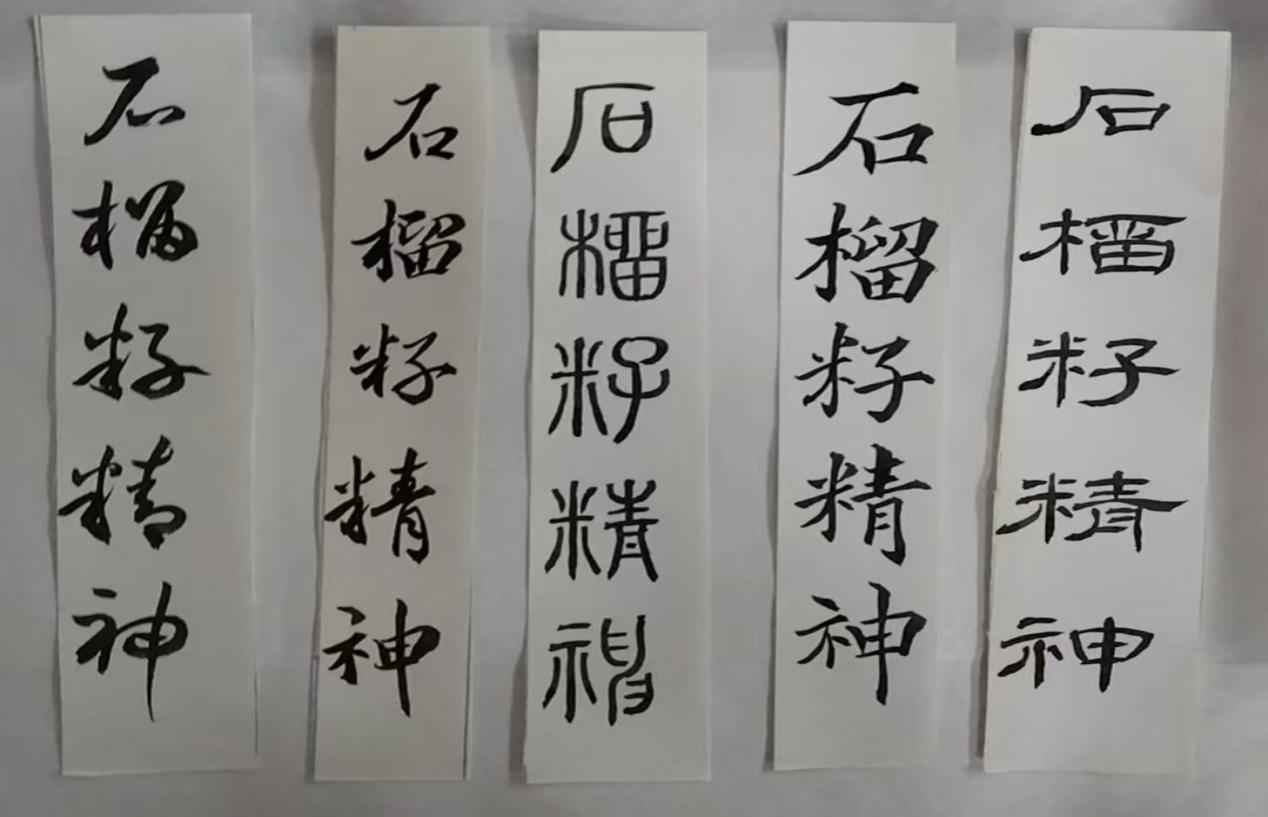 石榴籽精神
石榴籽精神
石榴籽精神
石榴籽精神
石榴籽精神